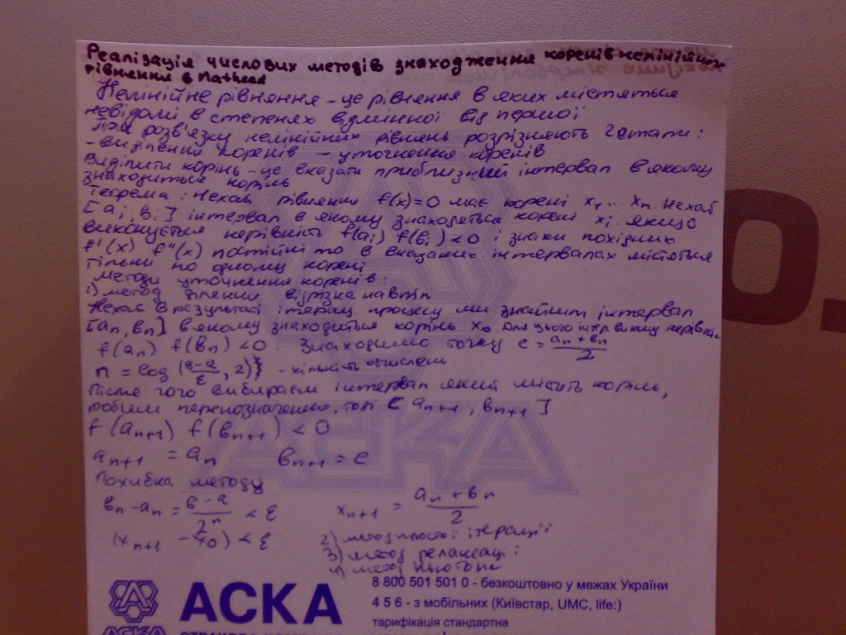 Реалізація числових методів знаходження коренів нелінійних
рівняння в Mathcad
Нелінійне рівняння - це рівняння в яких містяться
невідомі в степенях відмінної від першої
При розв'язку нелінійних рівнянь розрізняють 2 етапи:
- виділення коренів - уточнення коренів
Виділити корінь - це вказати приблизний інтервал в якому
знаходиться корінь
Теорема: Нехай рівняння f(x)=0 має корені x₁... xₙ. Нехай
[aᵢ, вᵢ] інтервал в якому знаходяться корені xᵢ якщо
виконується нерівність f(aᵢ) f(вᵢ) < 0 і знаки похідних
f'(x) f''(x) постійні то в вказаних інтервалах міститься
тільки по одному корені
Методи уточнення коренів:
1) метод ділення відрізка навпіл
Нехай в результаті ітерац. процесу ми знайшли інтервал
[aₙ, вₙ] в якому знаходиться корінь x₀ для цього інтервалу
f(aₙ) f(вₙ) < 0. Знаходимо точку c = (aₙ + вₙ)/2
n = log (в-a/ε, 2)} - кількість обчислень
Після того вибираєм інтервал який містить корінь,
робим перепозначення, тоді [aₙ₊₁, вₙ₊₁]
f (aₙ₊₁) f (вₙ₊₁) < 0
aₙ₊₁ = aₙ вₙ₊₁ = c
Похибка методу
вₙ - aₙ = (в-a)/2ⁿ < ε xₙ₊₁ = (aₙ + вₙ)/2
(xₙ₊₁ - x₀) < ε 2) метод простої ітерації
3) метод релаксації
4) метод Ньютона
АСКА
АСКА
8 800 501 501 0 - безкоштовно у межах України
4 5 6 - з мобільних (Київстар, UMC, life:)
тарифікація стандартна
АСКА